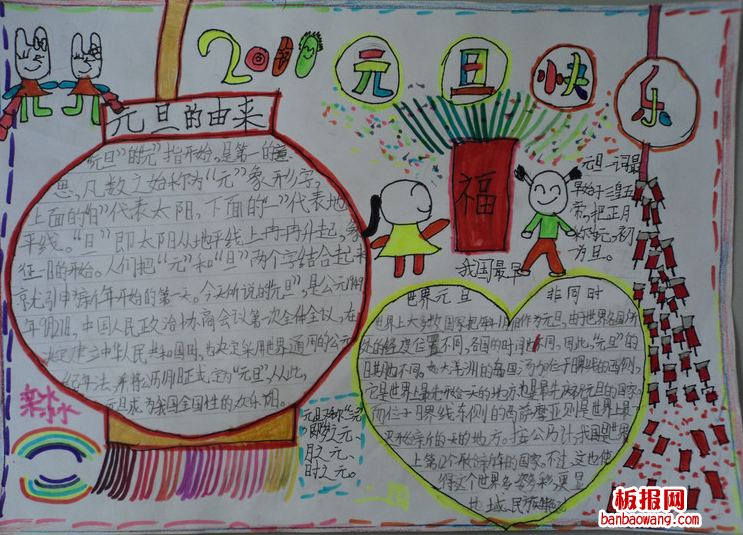 2010元旦快乐
元旦的由来
"元旦"的"元"指开始,是第一的意
思,凡数之始称为"元"象形字,
上面的"日"代表太阳,下面的"一"代表地
平线。"旦"即太阳从地平线上冉冉升起,象
征一日的开始。人们把"元"和"旦"两个字结合起来
就引申为新年开始的第一天。今天所说的"元旦",是公元
中国人民政治协商会议第一次全体会议,在
决定建立中华人民共和国时,也决定采用世界通用的公元
纪年法,并将公历1月1日正式定为"元旦",从此,
元旦成为我国全国性的欢乐节。
福
元旦一词最
早始于三皇五
帝,把正月
称为元,初一
为旦。
我国最早
世界元旦 非同时
世界上大多数国家把每年1月1日作为元旦,由于世界各国所
处的经度位置不同,各国的时间也不同,因此,"元旦"的
日期也不同。如大洋洲的岛国汤加位于日界线的西侧,
它是世界上最先开始一天的地方也是最先庆祝元旦的国家。
而位于日界线东侧的西萨摩亚则是世界上最
迟开始新的一天的地方。按公历计,我国是世界
上第12个开始新年的国家。不过,这也使
得这个世界多姿多彩,更具
地域、民族
元旦又称"三元"
即岁之元、
月之元、
时之元。
梁冰冰
板报网
banbaowang.com